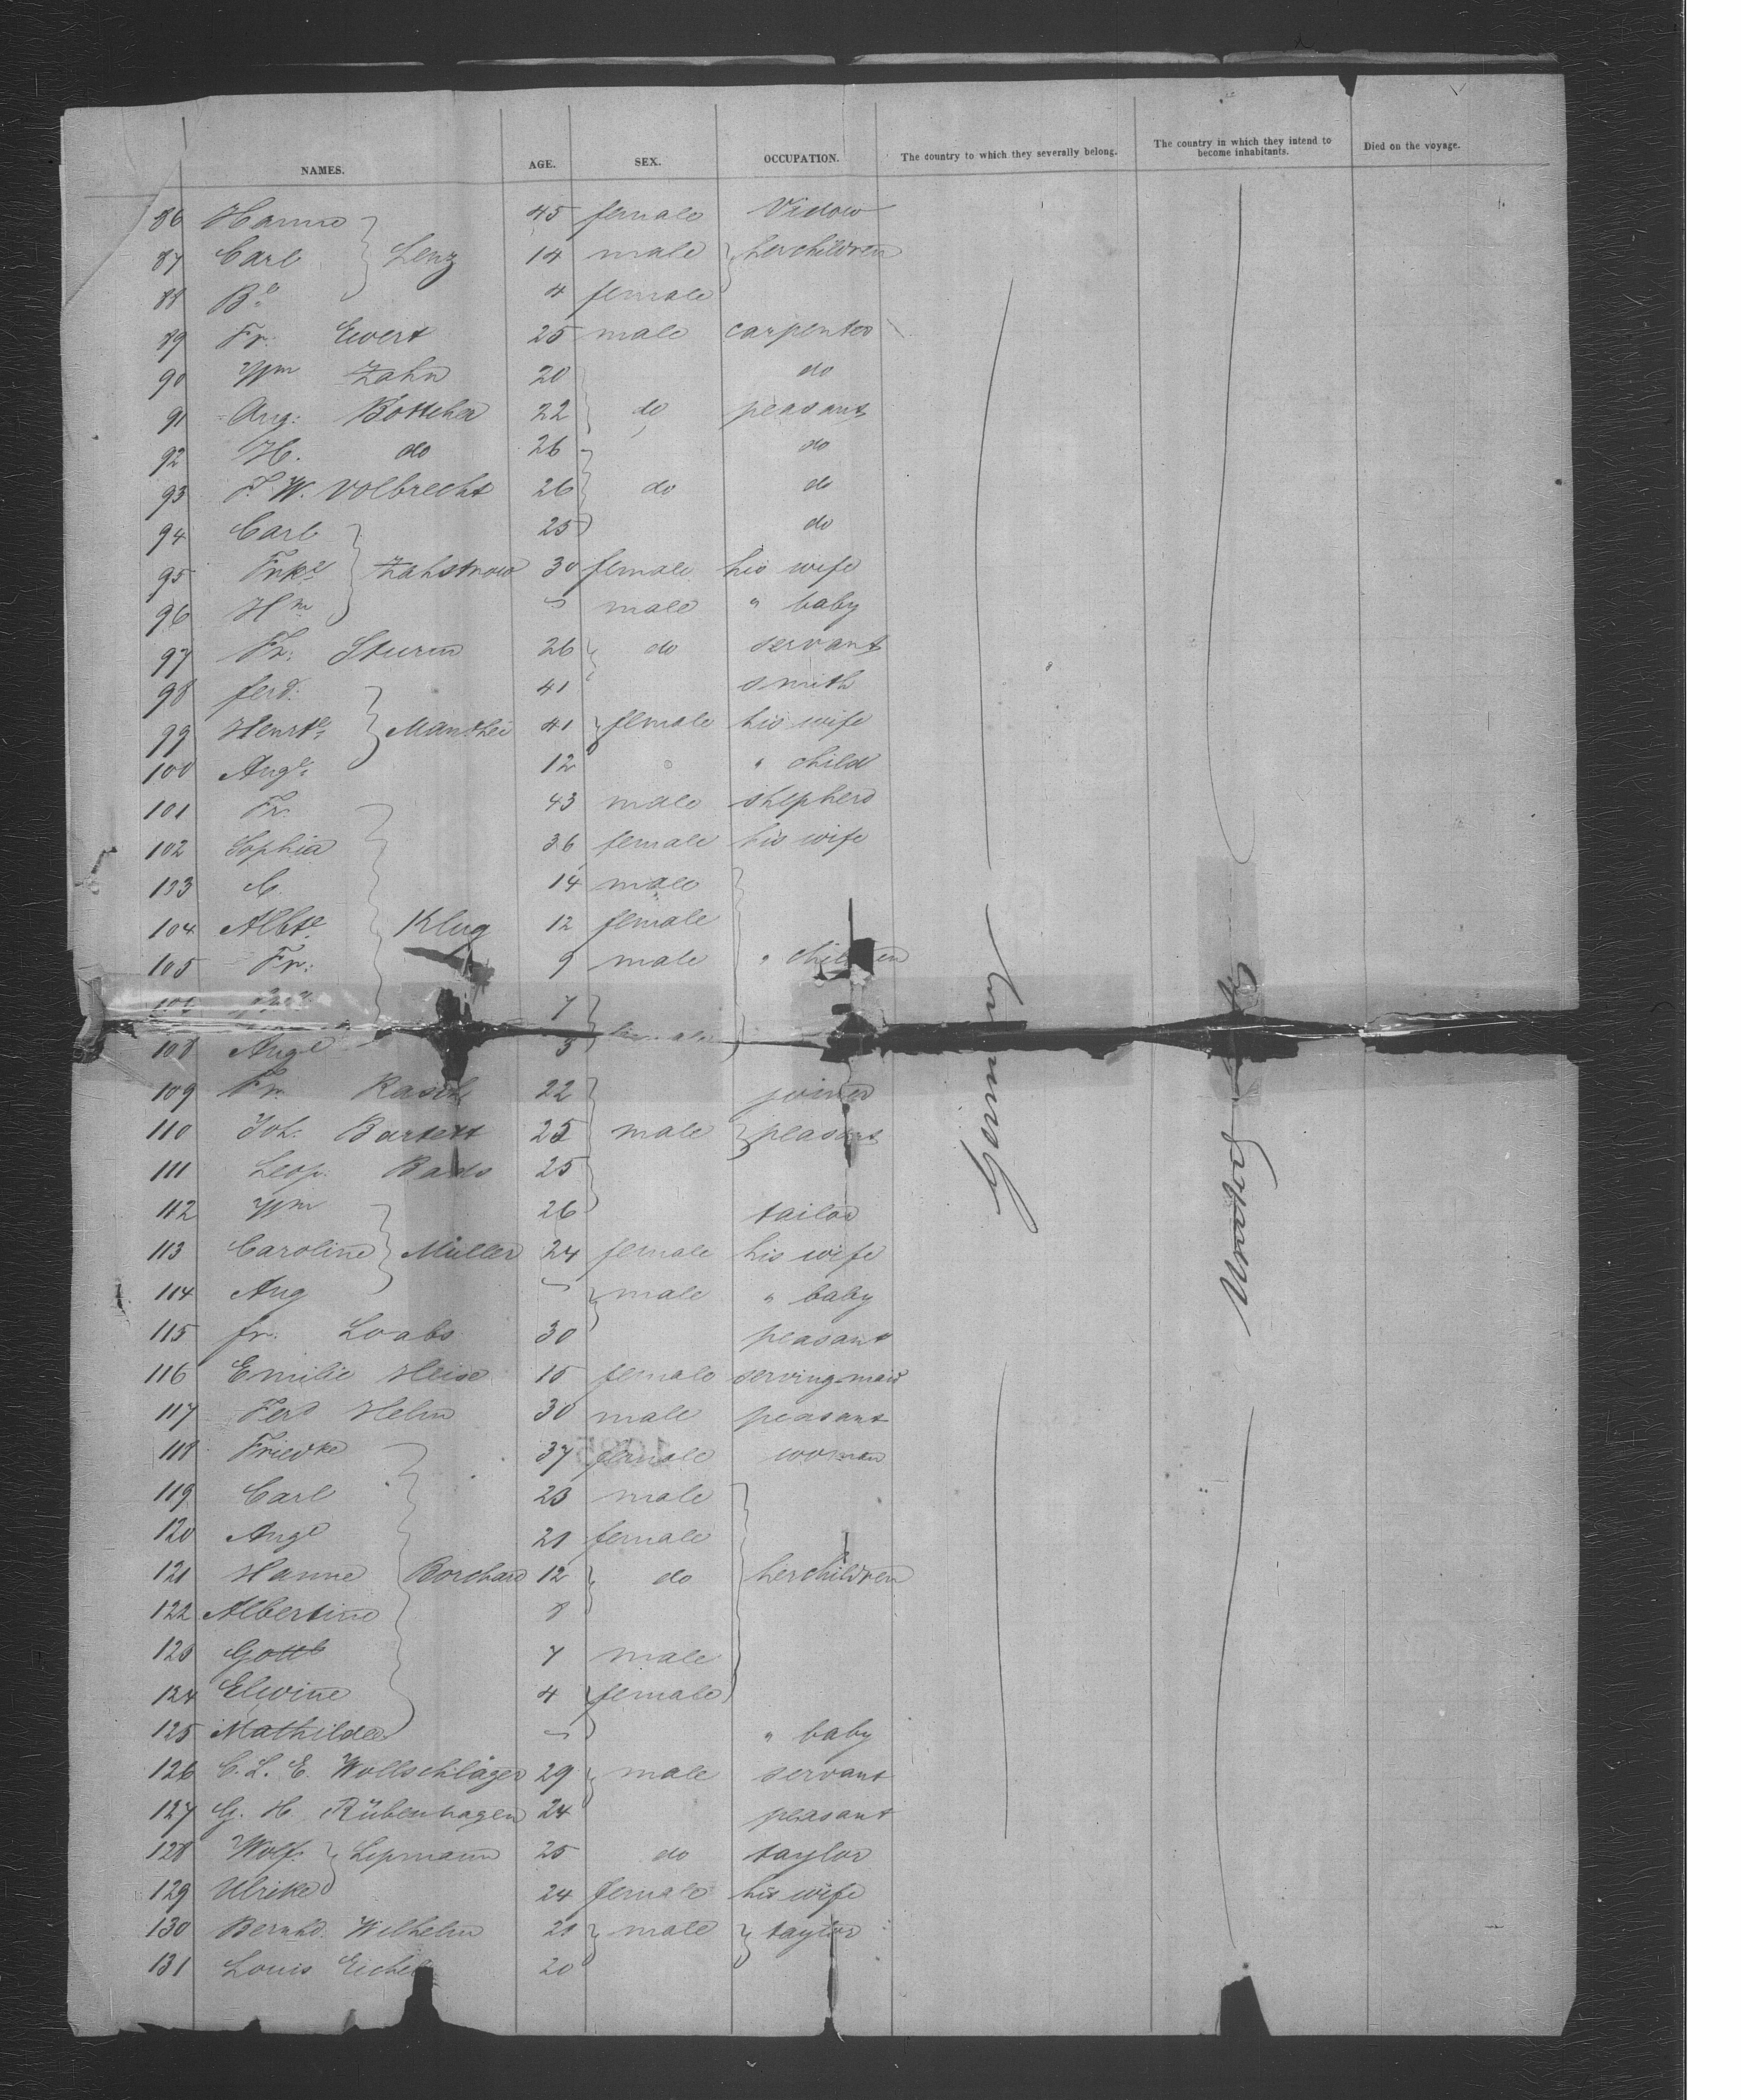 NAMES. AGE. SEX. OCCUPATION. The country to which they severally belong. The country in which they intend to become inhabitants. Died on the voyage.
86 Hanne 45 female Vidow
87 Carl Lenz 14 male her children
88 Be 4 female
89 Fr. Ewert 25 male carpenter
90 Wm Zahn 20 do
91 Aug. Böttcher 22 do peasant
92 H. do 26 do
93 F. W. Volbrecht 26 do do
94 Carl 25 do
95 Frke Zahstrow 30 female his wife
96 Hm male " baby
97 Fr. Sturm 26 do servant
98 ferd. 41 smith
99 Henrte Manthei 41 female his wife
100 Auge 12 " child
101 Fr. 43 male shepherd
102 Sophia 36 female his wife
103 C. 14 male
104 Albte Klug 12 female
105 Fr. 9 male " children
7 female
108 Auge 3
109 Fr. Rasch 22 joiner
110 Joh. Bartelt 25 male peasant
111 Leop. 25
112 Wm 26 tailor
113 Caroline Müller 24 female his wife
114 Aug male " baby
115 fr. Loabs 30 peasant
116 Emilie Heise 15 female serving-maid
117 Ferd Helm 30 male peasant
118 Friedke 37 female woman
119 Carl 23 male
120 Auge 21 female
121 Hanne Borchard 12 do her children
122 Albertine 8
123 Gottl 7 male
124 Elwine 4 female
125 Mathilde " baby
126 C. L. E. Wollschläger 29 male servant
127 G. H. Rübenhagen 24 peasant
128 Wolf. Lipmann 25 do taylor
129 Ulrike 24 female his wife
130 Bernhd. Wilhelm 21 male taylor
131 Louis Eichel 20
Germany
United